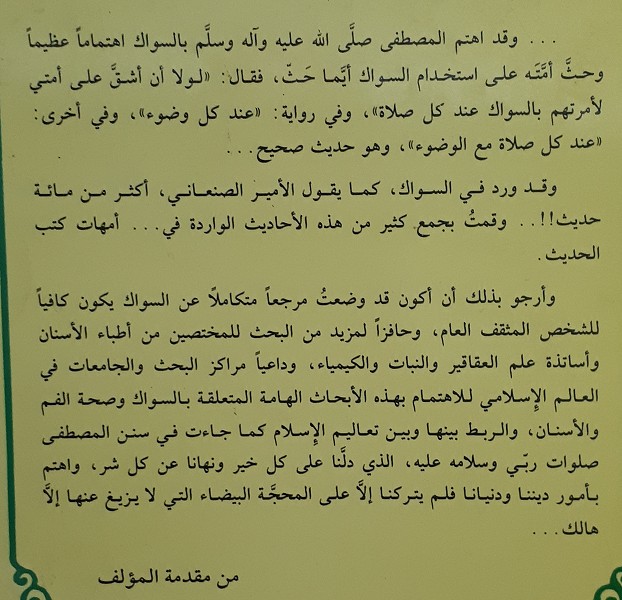 ... وقد اهتم المصطفى صلَّى الله عليه وآله وسلَّم بالسواك اهتماماً عظيماً
وحثَّ أمَّتَه على استخدام السواك أيَّما حَثّ، فقال: «لولا أن أشقَّ على أمتي
لأمرتهم بالسواك عند كل صلاة»، وفي رواية: «عند كل وضوء»، وفي أخرى:
«عند كل صلاة مع الوضوء»، وهو حديث صحيح...
وقد ورد في السواك، كما يقول الأمير الصنعاني، أكثر من مائة
حديث!!.. وقمتُ بجمع كثير من هذه الأحاديث الواردة في... أمهات كتب
الحديث.
وأرجو بذلك أن أكون قد وضعتُ مرجعاً متكاملاً عن السواك يكون كافياً
للشخص المثقف العام، وحافزاً لمزيد من البحث للمختصين من أطباء الأسنان
وأساتذة علم العقاقير والنبات والكيمياء، وداعياً مراكز البحث والجامعات في
العالم الإِسلامي للاهتمام بهذه الأبحاث الهامة المتعلقة بالسواك وصحة الفم
والأسنان، والربط بينها وبين تعاليم الإِسلام كما جاءت في سنن المصطفى
صلوات ربّي وسلامه عليه، الذي دلَّنا على كل خير ونهانا عن كل شر، واهتم
بأمور ديننا ودنيانا فلم يتركنا إلاَّ على المحجَّة البيضاء التي لا يزيغ عنها إلاَّ
هالك...
من مقدمة المؤلف